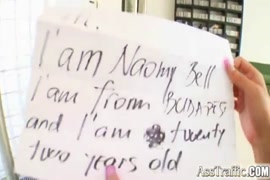 I'am Naomy Bell
I am from BUDAPEST
and I am twenty
two years old
AssTraffic.com